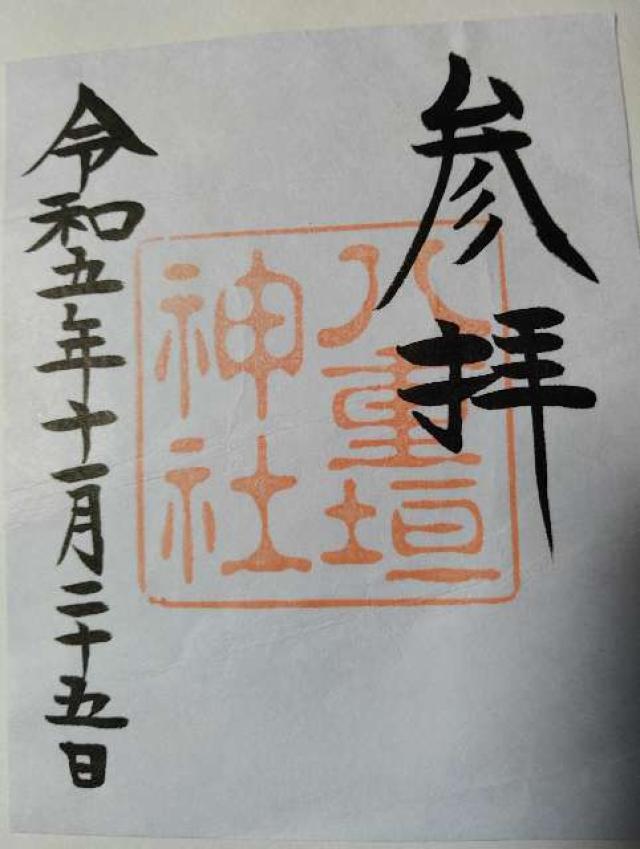 参拝
八重垣
神社
令和五年十一月二十五日